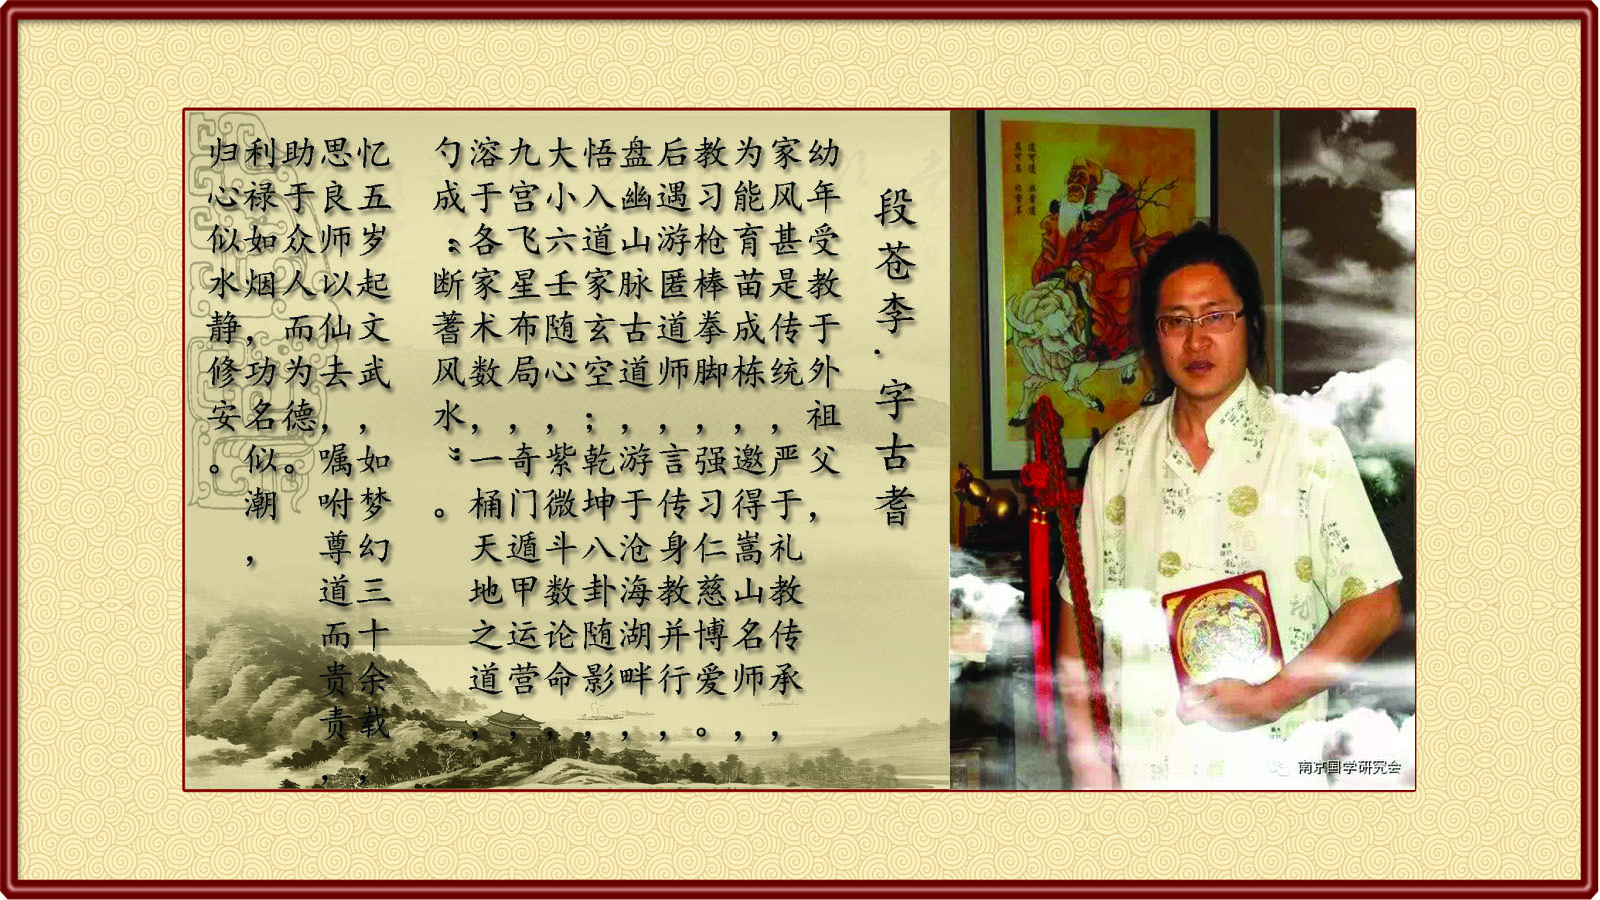 段苍李·字古耆
幼年受教于外祖父，
家风甚是传统，严于礼教传承，
为能育苗成栋，邀得嵩山名师，
教习枪棒拳脚，强习仁慈博爱。
后遇游匿道师，言传身教并行，
盘幽山脉古道，游于沧海湖畔，
悟入道家玄空；乾坤八卦随影，
大小六壬随心，紫微斗数论命，
九宫飞星布局，奇门遁甲运营，
溶于各家术数，一桶天地之道，
勺成“断蓍风水”。
忆五岁起文武，如梦幻三十余载，
思良师以仙去，嘱咐尊道而贵责，
助于众人而为德。
利禄如烟，功名似潮，
归心似水静修安。
道可道 非常道
名可名 非常名
南京国学研究会